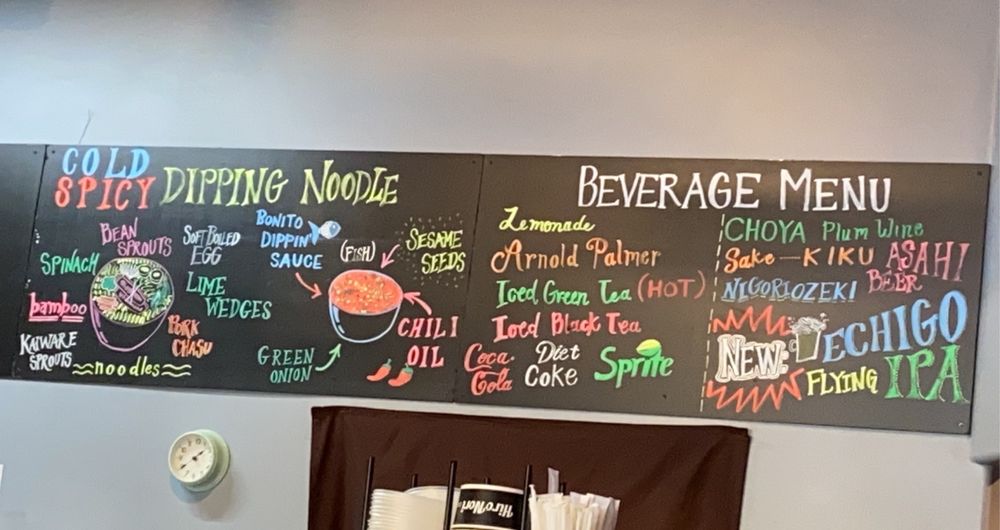 COLD
SPICY
DIPPING NOODLE
BEAN
SPROUTS
SOFT BOILED
EGG
SPINACH
LIME
WEDGES
bamboo
PORK
CHASU
KAIWARE
SPROUTS
noodles
BONITO
DIPPIN'
SAUCE
(FISH)
SESAME
SEEDS
CHILI
OIL
GREEN
ONION
BEVERAGE MENU
Lemonade
Arnold Palmer
Iced Green Tea (HOT)
Iced Black Tea
Coca-
Cola
Diet
Coke
Sprite
CHOYA Plum Wine
Sake-KIKU
ASAHI
BEER
NIGORI OZEKI
NEW:
ECHIGO
FLYING IPA
HiroNori